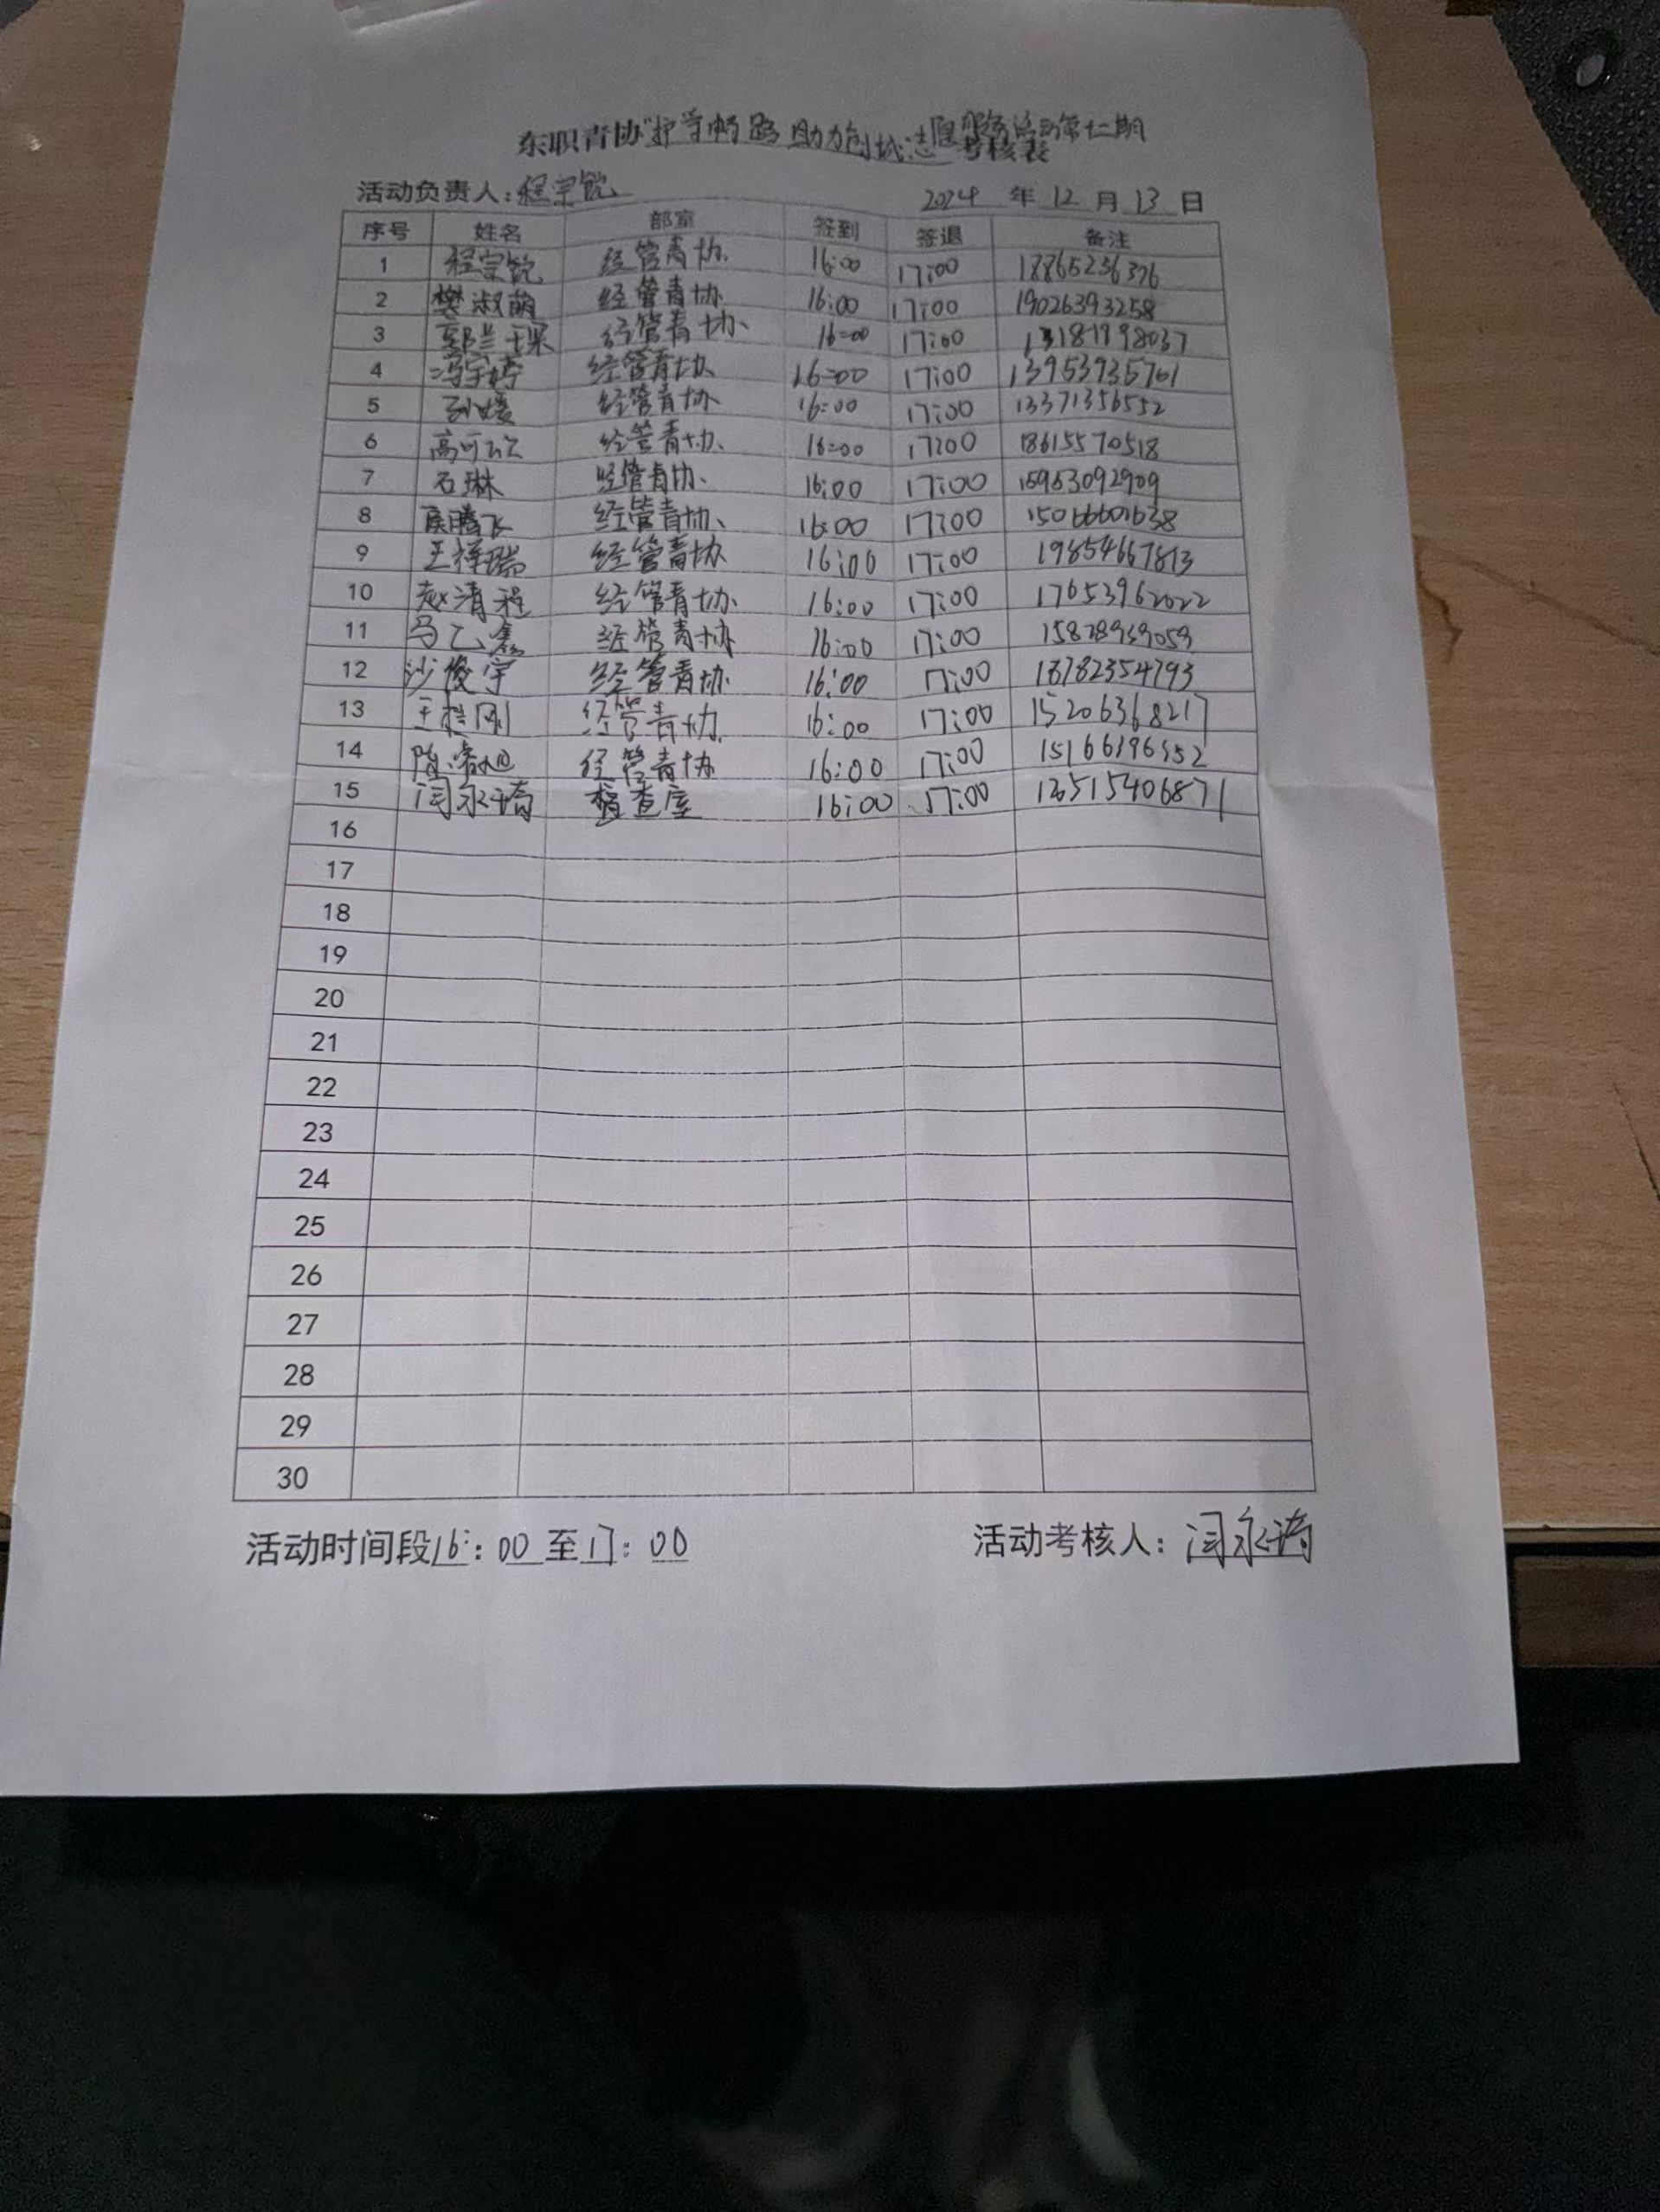 东职青协"护学畅路 助力创城"志愿服务活动第七期
考核表
活动负责人:程宗锐 2024 年 12 月 13 日
序号 姓名 部室 签到 签退 备注
1 程宗锐 经管青协 16:00 17:00 18865236376
2 樊淑萌 经管青协 16:00 17:00 19026393258
3 经管青协 16:00 17:00
4 冯宇婷 经管青协 16:00 17:00 13953935701
5 孙媛 经管青协 16:00 17:00 13371356552
6 高可 经管青协 16:00 17:00 18615570518
7 石琳 经管青协 16:00 17:00 15953092909
8 腾飞 经管青协 16:00 17:00
9 王祥瑞 经管青协 16:00 17:00 19854667813
10 赵清程 经管青协 16:00 17:00 17653962022
11 马乙鑫 经管青协 16:00 17:00
12 沙俊宇 经管青协 16:00 17:00 18782354793
13 王 刚 经管青协 16:00 17:00 15206368217
14 隋 旭 经管青协 16:00 17:00
15 闫永琦 检查室 16:00 17:00
16
17
18
19
20
21
22
23
24
25
26
27
28
29
30
活动时间段16:00至17:00 活动考核人:闫永琦